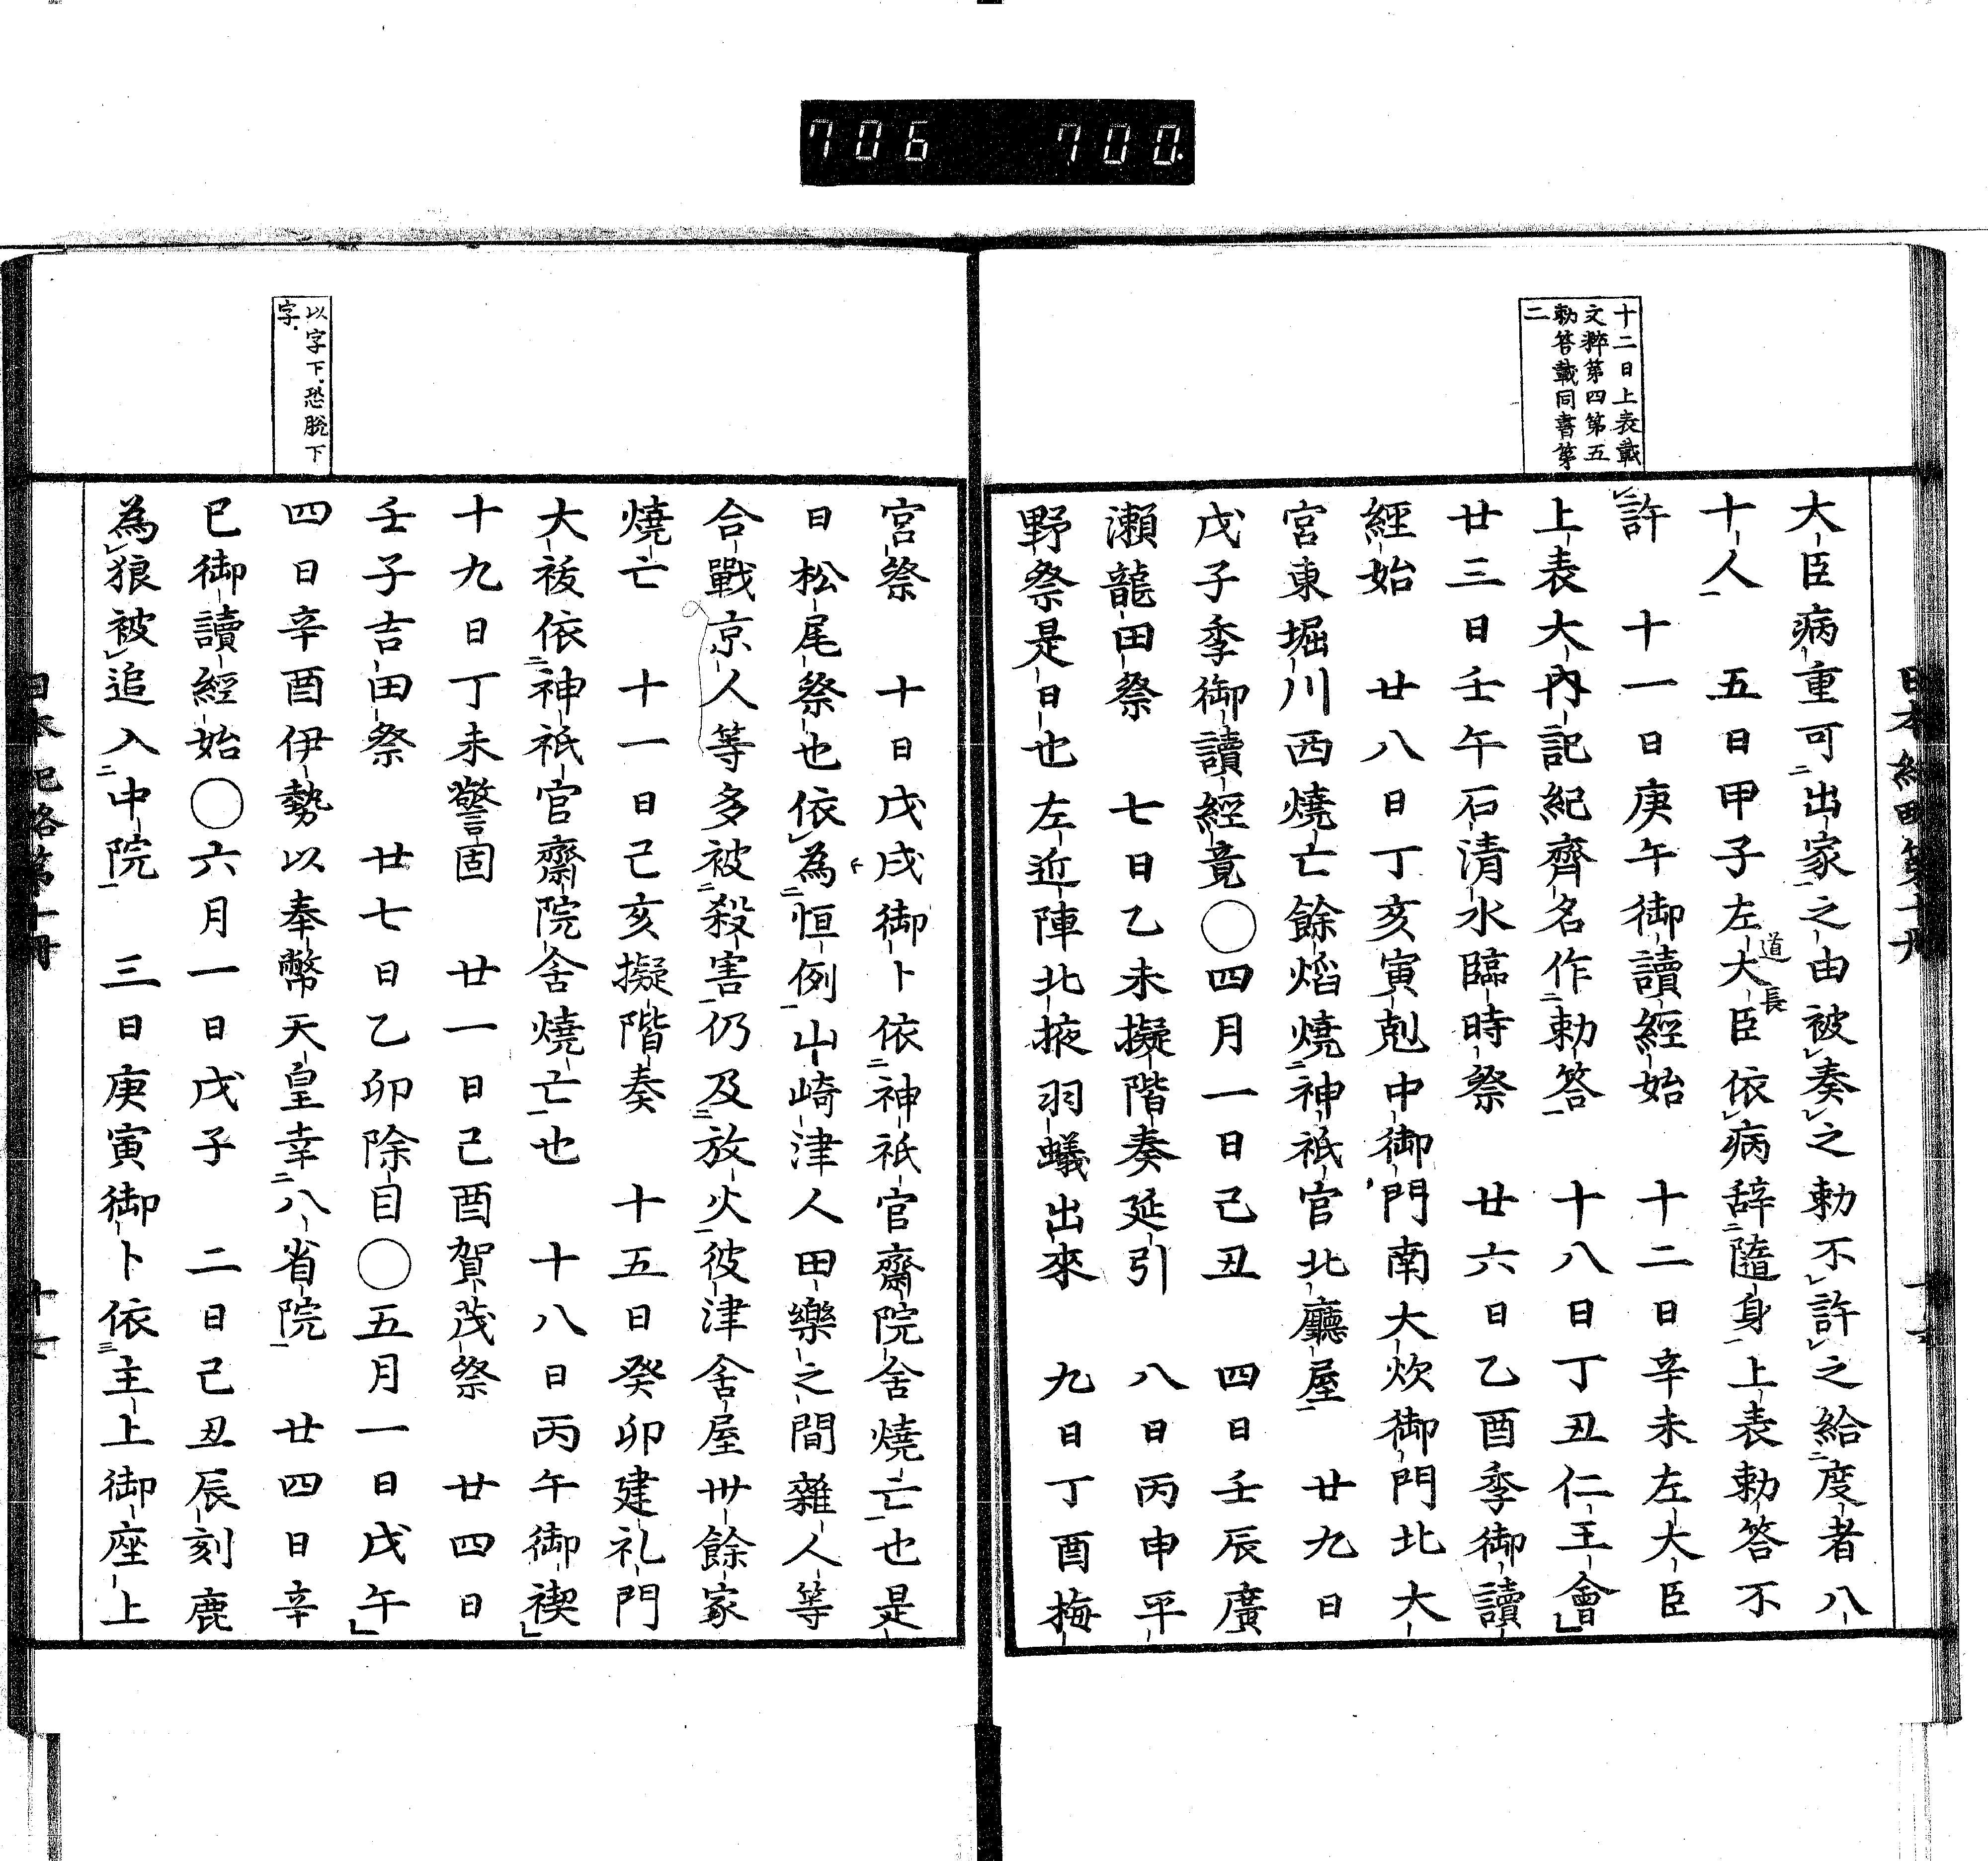 706 700.
十二日上表載
文粹第四第五
勅答載同書第
二
大臣病重可出家之由被奏之勅不許之給度者八
十人　五日甲子左大臣依病辞隨身上表勅答不
道長
許　十一日庚午御讀經始　十二日辛未左大臣
上表大內記紀齊名作勅答　十八日丁丑仁王會
廿三日壬午石清水臨時祭　廿六日乙酉季御讀
經始　廿八日丁亥寅剋中御門南大炊御門北大
宮東堀川西燒亡餘焰燒神祇官北廳屋　廿九日
戊子季御讀經竟〇四月一日己丑　四日壬辰廣
瀬龍田祭　七日乙未擬階奏延引　八日丙申平
野祭是日也左近陣北掖羽蟻出來　九日丁酉梅
以字下恐脫下
字
宮祭　十日戊戌御卜依神祇官齋院舍燒亡也是
日松尾祭也依為恒例山崎津人田樂之間雜人等
合戰京人等多被殺害仍及放火彼津舍屋卅餘家
燒亡　十一日己亥擬階奏　十五日癸卯建礼門
大祓依神祇官齋院舍燒亡也　十八日丙午御禊
十九日丁未警固　廿一日己酉賀茂祭　廿四日
壬子吉田祭　廿七日乙卯除目〇五月一日戊午
四日辛酉伊勢以奉幣天皇幸八省院　廿四日辛
巳御讀經始〇六月一日戊子　二日己丑辰刻鹿
為狼被追入中院　三日庚寅御卜依主上御座上